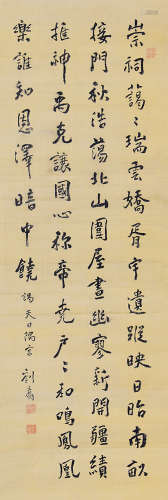 崇祠藹々瑞雲嬌胥宇遺蹤映日昭南畝
接門秋浩蕩北山圍屋晝幽寥新開疆績
推神禹克讓國心称帝堯戶々知鳴鳳凰
樂誰知恩澤暗中饒
謁天日隅宮